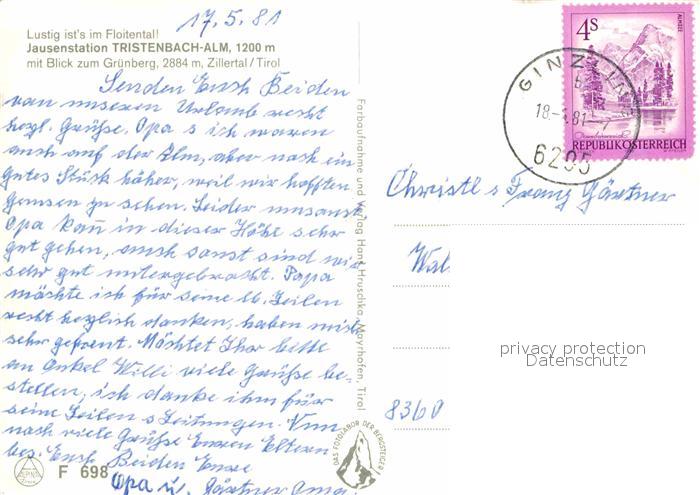 17.5.81
Lustig ist's im Floitental!
Jausenstation TRISTENBACH-ALM, 1200 m
mit Blick zum Grünberg, 2884 m, Zillertal/Tirol
Senden Euch Beiden
von unserem Urlaub recht
herzl. Grüße. Opa s ich waren
auch auf der Alm, aber noch ein
gutes Stück höher, weil wir hofften
Gemsen zu sehen. Leider umsonst
Opa kan̄ in dieser Höhe sehr
gut gehen, auch sonst sind wir
sehr gut untergebracht. Papa
möchte ich für seine lb. Zeilen
recht herzlich danken, haben mich
sehr gefreut. Möchtet Ihr bitte
an Onkel Willi viele Grüße be-
stellen, ich danke ihm für
seine Zeilen s Zeitungen. Nun
noch viele Grüße Euren Eltern
bes. Euch Beiden Eure
Opa u. Gärtner Oma.
F 698
Farbaufnahme und Verlag Hans Hruschka, Mayrhofen, Tirol
DAS FOTOLABOR DER BERGSTEIGER
4S
ALMSEE
REPUBLIK ÖSTERREICH
GINZLING
18-5.81
6295
Christl s Franz Gärtner
Wal
8360
privacy protection
Datenschutz